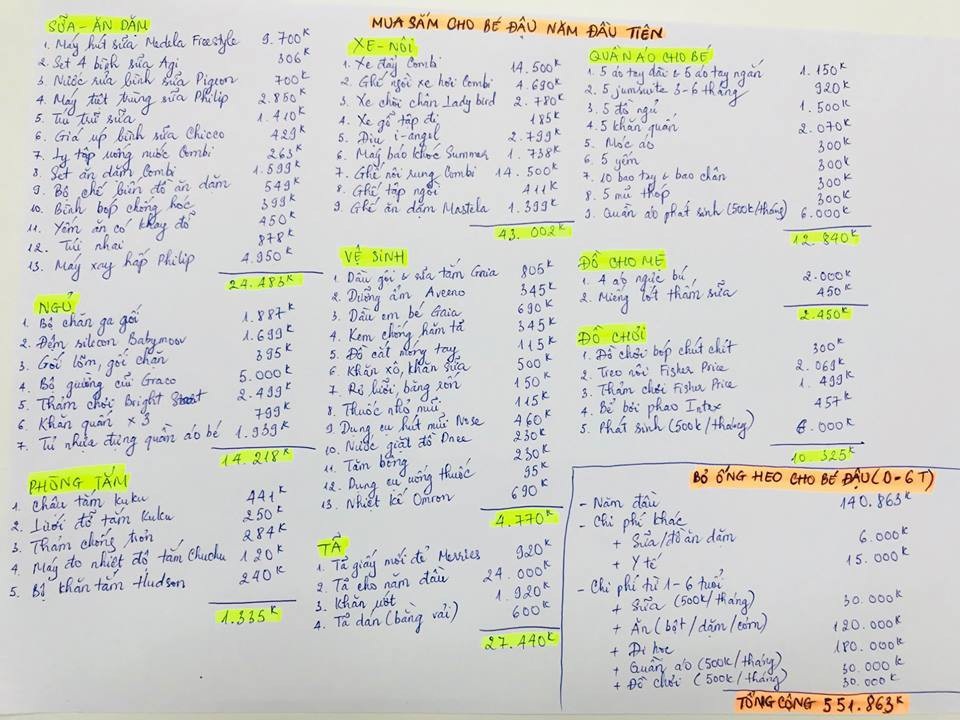 MUA SẮM CHO BÉ ĐẬU NĂM ĐẦU TIÊN
SỮA - ĂN DẶM
1. Máy hút sữa Medela Freestyle 9.700K
2. Set 4 bình sữa Agi 306K
3. Nước rửa bình sữa Pigeon 700K
4. Máy tiệt trùng sữa Philip 2.850K
5. Túi trữ sữa 1.410K
6. Giá úp bình sữa Chicco 429K
7. Ly tập uống nước Combi 263K
8. Set ăn dặm Combi 1.599K
9. Bộ chế biến đồ ăn dặm 549K
10. Bình bóp chống hóc 399K
11. Yếm ăn có khay đổ 450K
12. Túi nhai 878K
13. Máy xay hấp Philip 4.950K
24.483K
NGỦ
1. Bộ chăn ga gối 1.887K
2. Đệm silicon Babymoov 1.699K
3. Gối lõm, gối chặn 395K
4. Bộ giường cũi Graco 5.000K
5. Thảm chơi Bright 2.499K
6. Khăn quấn x 3 799K
7. Tủ nhựa đựng quần áo bé 1.939K
14.218K
PHÒNG TẮM
1. Chậu tắm Kuku 441K
2. Lưới đỡ tắm Kuku 250K
3. Thảm chống trơn 284K
4. Máy đo nhiệt độ tắm Chuchu 120K
5. Bộ khăn tắm Hudson 240K
1.335K
XE - NÔI
1. Xe đẩy Combi 14.500K
2. Ghế ngồi xe hơi Combi 4.690K
3. Xe chòi chân Lady bird 2.780K
4. Xe gỗ tập đi 185K
5. Địu i-angel 2.799K
6. Máy báo khóc Summer 1.738K
7. Ghế nôi rung Combi 14.500K
8. Ghế tập ngồi 411K
9. Ghế ăn dặm Mastela 1.399K
43.002K
VỆ SINH
1. Dầu gội & sữa tắm Gaia 805K
2. Dưỡng ẩm Aveeno 345K
3. Dầu em bé Gaia 690K
4. Kem chống hăm tã 345K
5. Đồ cắt móng tay 115K
6. Khăn xô, khăn sữa 500K
7. Rơ lưỡi, băng rốn 150K
8. Thuốc nhỏ mũi 115K
9. Dụng cụ hút mũi Nose 460K
10. Nước giặt đồ Dnee 230K
11. Tăm bông 230K
12. Dụng cụ uống thuốc 95K
13. Nhiệt kế Omron 690K
4.770K
TÃ
1. Tã giấy mới đẻ Merries 920K
2. Tã cho năm đầu 24.000K
3. Khăn ướt 1.920K
4. Tã dán (bằng vải) 600K
27.440K
QUẦN ÁO CHO BÉ
1. 5 áo tay dài & 5 áo tay ngắn 1.150K
2. 5 jumsuite 3-6 tháng 920K
3. 5 đồ ngủ 1.500K
4. 5 khăn quấn 2.070K
5. Móc áo 300K
6. 5 yếm 300K
7. 10 bao tay & bao chân 300K
8. 5 mũ thóp 300K
9. Quần áo phát sinh (500K/tháng) 6.000K
12.840K
ĐỒ CHO MẸ
1. 4 áo ngực bú 2.000K
2. Miếng lót thấm sữa 450K
2.450K
ĐỒ CHƠI
1. Đồ chơi bóp chút chít 300K
2. Treo nôi Fisher Price 2.069K
3. Thảm chơi Fisher Price 1.499K
4. Bể bơi phao Intex 457K
5. Phát sinh (500K/tháng) 6.000K
10.325K
BỎ ỐNG HEO CHO BÉ ĐẬU (0-6T)
- Năm đầu 140.863K
- Chi phí khác
+ Sữa/đồ ăn dặm 6.000K
+ Y tế 15.000K
- Chi phí từ 1-6 tuổi
+ Sữa (500K/tháng) 30.000K
+ Ăn (bột/dặm/cơm) 120.000K
+ Đi học 180.000K
+ Quần áo (500K/tháng) 30.000K
+ Đồ chơi (500K/tháng) 30.000K
TỔNG CỘNG 551.863K